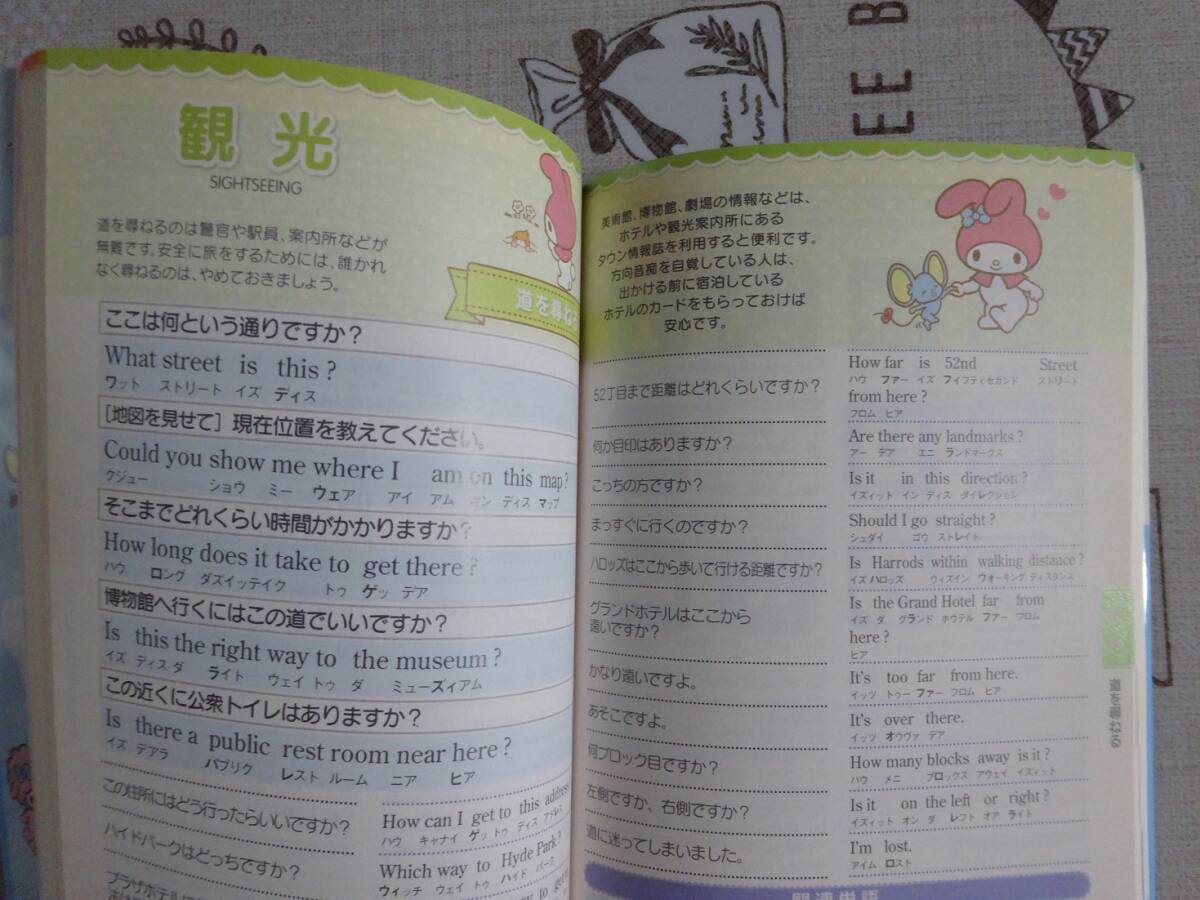 観光
SIGHTSEEING
道を尋ねるのは警官や駅員、案内所などが
無難です。安全に旅をするためには、誰かれ
なく尋ねるのは、やめておきましょう。
道を尋ね
ここは何という通りですか？
What street is this ?
ワット ストリート イズ ディス
［地図を見せて］現在位置を教えてください。
Could you show me where I am on this map?
クジュー ショウ ミー ウェア アイ アム オン ディス マップ
そこまでどれくらい時間がかかりますか？
How long does it take to get there ?
ハウ ロング ダズイッテイク トゥ ゲッ デア
博物館へ行くにはこの道でいいですか？
Is this the right way to the museum ?
イズ ディス ダ ライト ウェイ トゥ ダ ミューズィアム
この近くに公衆トイレはありますか？
Is there a public rest room near here ?
イズ デアラ パブリク レスト ルーム ニア ヒア
この住所にはどう行ったらいいですか？
How can I get to this address
ハウ キャナイ ゲットゥ ディス アドレス
ハイドパークはどっちですか？
Which way to Hyde Park ?
ウィッチ ウェイ トゥ ハイド パーク
プラザホテルに
美術館、博物館、劇場の情報などは、
ホテルや観光案内所にある
タウン情報誌を利用すると便利です。
方向音痴を自覚している人は、
出かける前に宿泊している
ホテルのカードをもらっておけば
安心です。
52丁目まで距離はどれくらいですか？
How far is 52nd Street
ハウ ファー イズ フィフティセカンド ストリート
from here ?
フロム ヒア
何か目印はありますか？
Are there any landmarks ?
アー デア エニ ランドマークス
こっちの方ですか？
Is it in this direction ?
イズィット イン ディス ダイレクション
まっすぐに行くのですか？
Should I go straight ?
シュダイ ゴウ ストレイト
ハロッズはここから歩いて行ける距離ですか？
Is Harrods within walking distance ?
イズ ハロッズ ウィズイン ウォーキング ディスタンス
グランドホテルはここから
遠いですか？
Is the Grand Hotel far from
イズ ダ グランド ホウテル ファー フロム
here ?
ヒア
かなり遠いですよ。
It's too far from here.
イッツ トゥー ファー フロム ヒア
あそこですよ。
It's over there.
イッツ オウヴァ デア
何ブロック目ですか？
How many blocks away is it ?
ハウ メニ ブロックス アウェイ イズィット
左側ですか、右側ですか？
Is it on the left or right ?
イズィット オン ダ レフト オア ライト
道に迷ってしまいました。
I'm lost.
アイム ロスト
関連単語
道を尋ねる
EE B